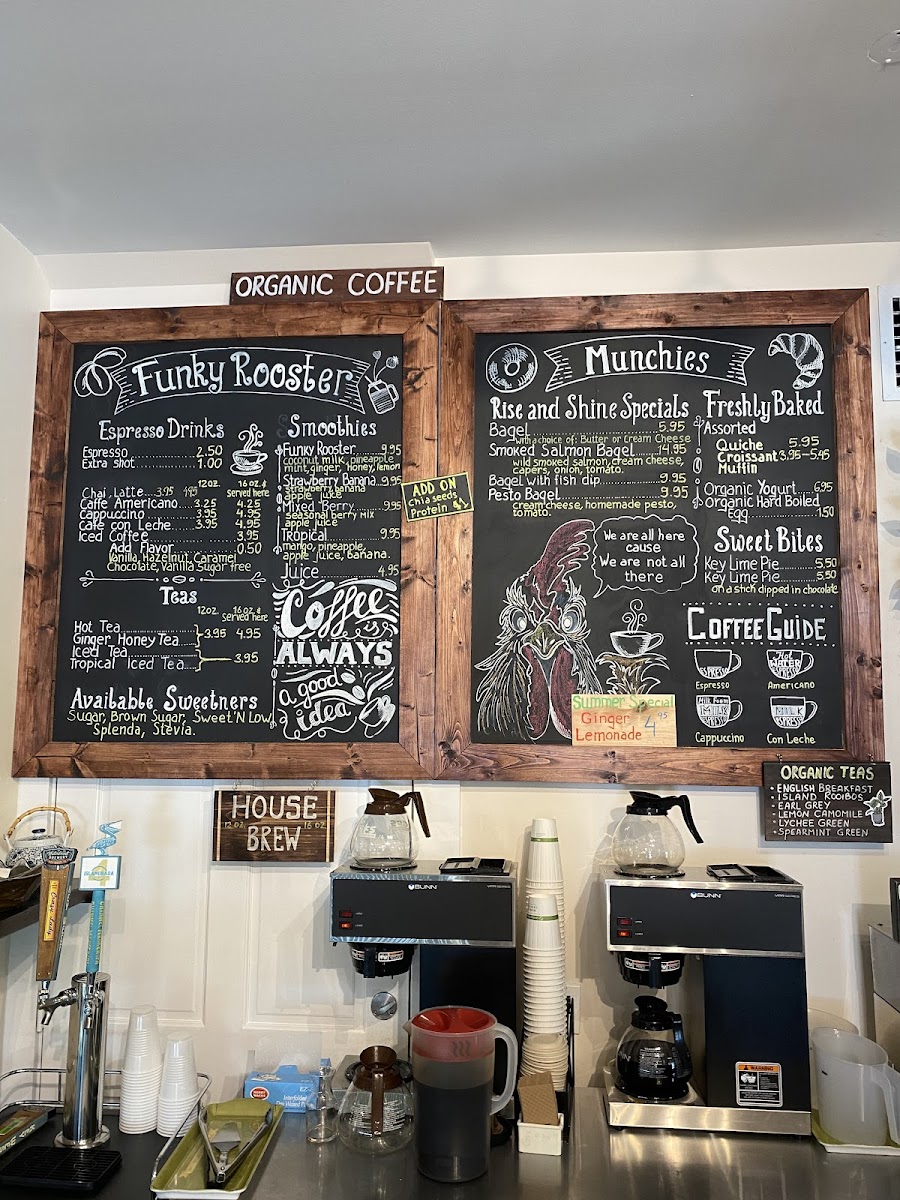 ORGANIC COFFEE
Funky Rooster
Espresso Drinks
Espresso 2.50
Extra shot 1.00
12oz. 16 oz. &
Served here
Chai Latte 3.95 4.95
Caffe Americano 3.25 4.25
Cappuccino 3.95 4.95
Café con Leche 3.95 4.95
Iced Coffee 3.95
Add Flavor 0.50
Vanilla, Hazelnut, Caramel
Chocolate, Vanilla Sugar free
Teas
12oz. 16 oz. &
served here
Hot Tea
Ginger Honey Tea 3.95 4.95
Iced Tea
Tropical Iced Tea 3.95
Available Sweetners
Sugar, Brown Sugar, Sweet'N Low,
Splenda, Stevia.
Smoothies
Funky Rooster 9.95
coconut milk, pineapple
mint, ginger, honey, lemon
Strawberry Banana 9.95
strawberry, banana
apple juice
Mixed Berry 9.95
seasonal berry mix
apple juice
Tropical 9.95
mango, pineapple,
apple juice, banana.
Juice 4.95
Coffee
is
ALWAYS
a good
idea
ADD ON
chia seeds
Protein
Munchies
Rise and Shine Specials
Bagel 5.95
with a choice of: Butter or Cream Cheese
Smoked Salmon Bagel 14.95
wild smoked salmon, cream cheese,
capers, onion, tomato.
Bagel with fish dip 9.95
Pesto Bagel 9.95
cream cheese, homemade pesto,
tomato.
We are all here
cause
We are not all
there
Summer Special
Ginger
Lemonade 4.95
Freshly Baked
Assorted
Quiche 5.95
Croissant 3.95-5.45
Muffin
Organic Yogurt 6.95
Organic Hard Boiled
egg 1.50
Sweet Bites
Key Lime Pie 5.50
Key Lime Pie 5.50
on a stick dipped in chocolate
COFFEE GUIDE
ESPRESSO
Espresso
Hot
WATER
ESPRESSO
Americano
Milk Foam
MILK
ESPRESSO
Cappuccino
MILK
ESPRESSO
Con Leche
ORGANIC TEAS
• ENGLISH BREAKFAST
• ISLAND ROOIBOS
• EARL GREY
• LEMON CAMOMILE
• LYCHEE GREEN
• SPEARMINT GREEN
HOUSE
12 OZ 16 OZ
BREW
BUNN
BUNN
WARNING